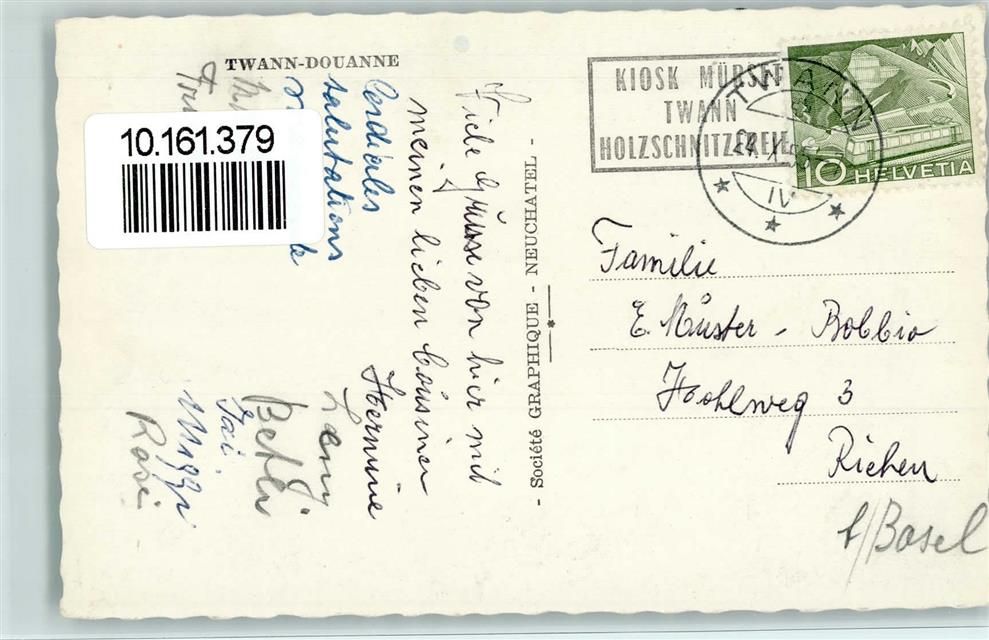 TWANN-DOUANNE
10.161.379
KIOSK MÜRSET
TWANN
HOLZSCHNITZEREIE
TWANN
24. X. 5
IV
10 HELVETIA
- Société GRAPHIQUE - NEUCHATEL -
Viele Grüsse von hier mit
meinen lieben Cousinen
Cordiales
salutations
Hermine
Leny
Bethli
Rosi
Familie
E. Müster - Bobbio
Hohlweg 3
Riehen
b/Basel